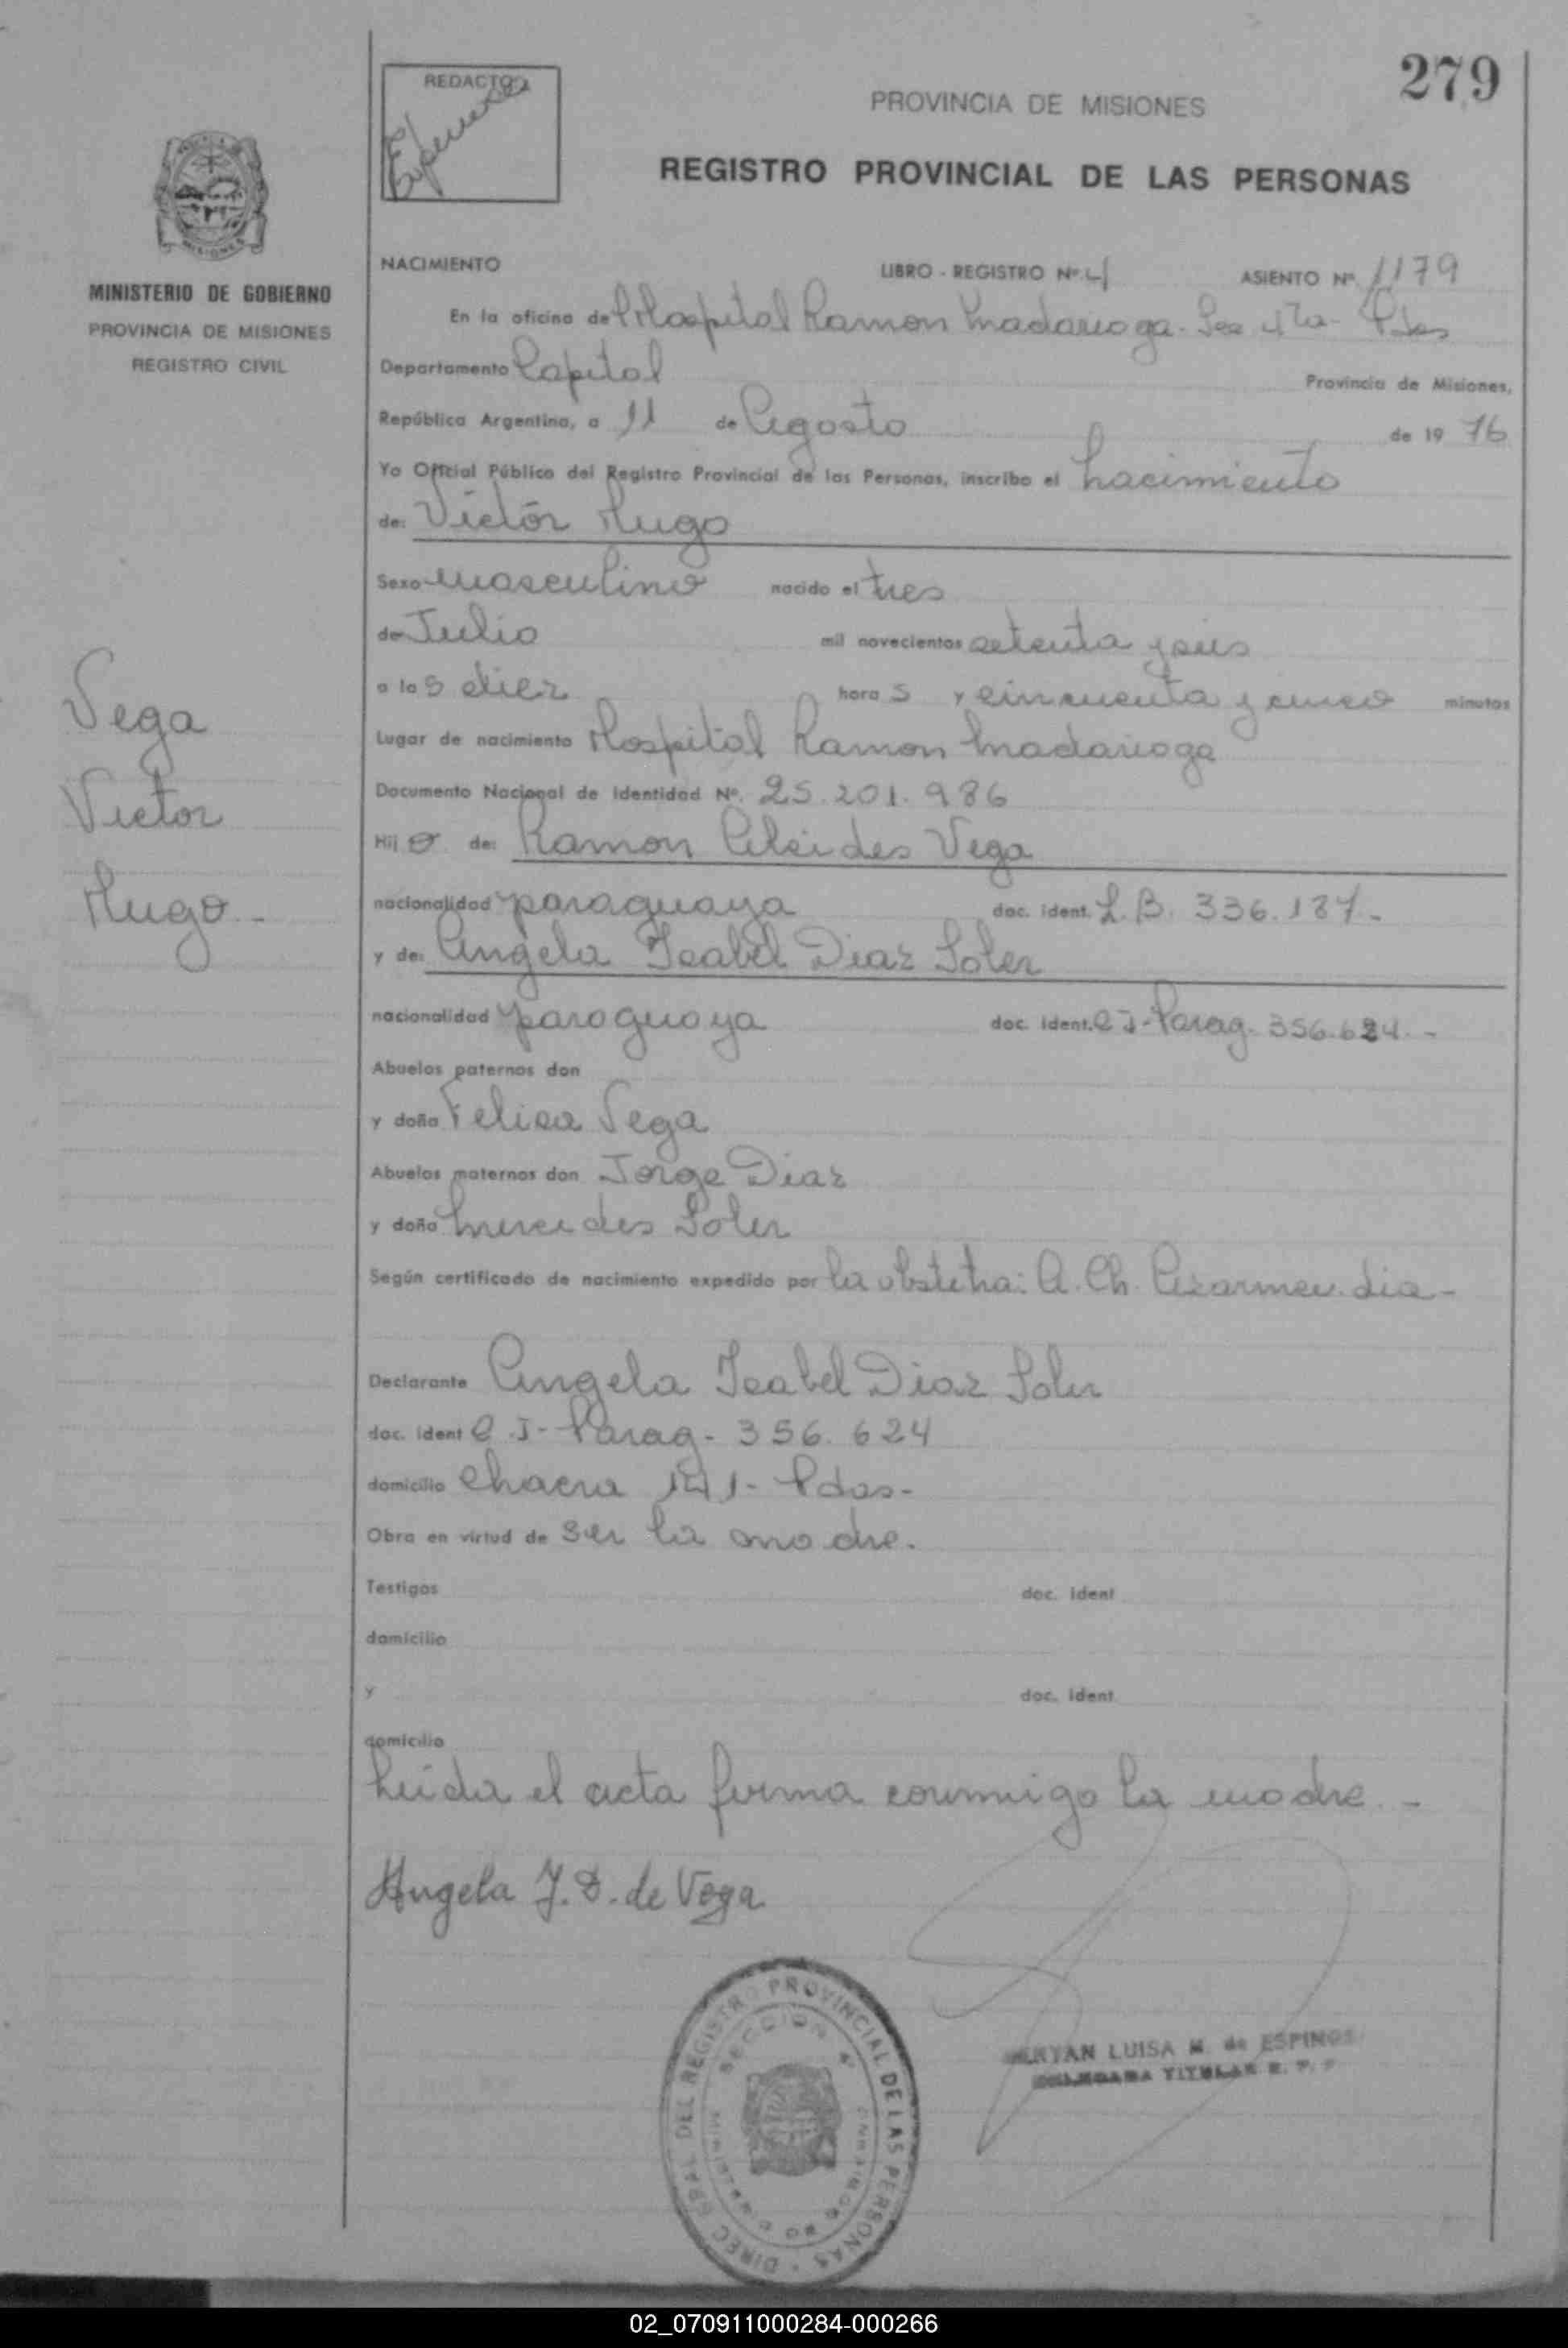 279
REDACTOR
PROVINCIA DE MISIONES
REGISTRO PROVINCIAL DE LAS PERSONAS
MISIONES
MINISTERIO DE GOBIERNO
PROVINCIA DE MISIONES
REGISTRO CIVIL
NACIMIENTO LIBRO - REGISTRO Nº 4 ASIENTO Nº 1179
En la oficina de Hospital Ramon Madariaga - Sec 4ta - Pdas
Departamento Capital Provincia de Misiones,
República Argentina, a 11 de Agosto de 19 76
Yo Oficial Público del Registro Provincial de las Personas, inscribo el nacimiento
de: Victór Hugo
Sexo masculino nacido el tres
de Julio mil novecientos setenta y seis
a las diez horas y cincuenta y cinco minutos
Lugar de nacimiento Hospital Ramon Madariaga
Documento Nacional de Identidad Nº. 25.201.986
Hijo de: Ramon Alcides Vega
nacionalidad paraguaya doc. ident. L.B. 336.187.-
y de: Angela Isabel Diaz Soler
nacionalidad paraguaya doc. ident. C I - Parag. 356.624.-
Abuelos paternos don
y doña Felisa Vega
Abuelos maternos don Jorge Diaz
y doña Mercedes Soler
Según certificado de nacimiento expedido por la obstetra: A. Ch. Azarmendia-
Declarante Angela Isabel Diaz Soler
doc. ident C.I - Parag - 356.624
domicilio Chacra 141 - Pdas-
Obra en virtud de ser la madre.
Testigos doc. ident
domicilio
y doc. ident
domicilio
Leida el acta firma conmigo la madre.-
Vega
Victor
Hugo-
Angela I. D. de Vega
DIREC. GRAL. DEL REGISTRO PROVINCIAL DE LAS PERSONAS
SECCION 4ª
LUISA M. de ESPINOS
TITULAR R. P. P
02_070911000284-000266